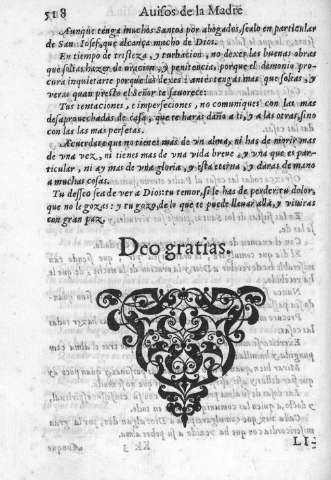 518 Auisos de la Madre
Aunque tenga muchos Santos por abogados, sealo en particular
de San Iosef, que alcança mucho de Dios.
En tiempo de tristeza, y turbacion, no dexes las buenas obras
que solias hazer de oracion, y penitencia, porque el demonio pro-
cura inquietarte porque las dexes: antes tengas mas que solias, y
veras quan presto el Señor te fauorece.
Tus tentaciones, e imperfeciones, no comuniques con las mas
desaprouechadas de casa, que te haras daño a ti, y a las otras, sino
con las mas perfetas.
Acuerdate que no tienes más de vn alma, ni has de morir mas
de vna vez, ni tienes mas de vna vida breue, y vna que es par-
ticular, ni ay mas de vna gloria, y esta eterna, y daras de mano
a muchas cosas.
Tu desseo sea de ver a Dios: tu temor, si le has de perder: tu dolor,
que no le gozas: y tu gozo, de lo que te puede lleuar alla, y viuiras
con gran paz.
Deo gratias.
LI-